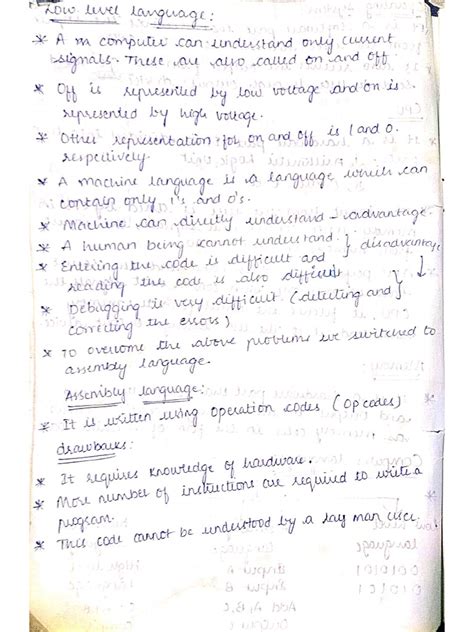 Low level language:
* A m computer can understand only current
signals. These are also called on and off.
* Off is represented by low voltage and on is
represented by high voltage.
* Other representation for on and off is 1 and 0.
respectively.
* A machine language is a language which can
contain only 1's and 0's.
* Machine can directly understand - advantage.
* A human being cannot understand.
* Entering the code is difficult and } disadvantage
reading the code is also difficult
* Debugging is very difficult (detecting and }
correcting the errors)
* To overcome the above problems we switched to
assembly language.
Assembly language:
* It is written using operation codes (Opcodes)
drawbacks:
* It requires knowledge of hardware.
* More number of instructions are required to write a
program.
* This code cannot be understood by a lay man